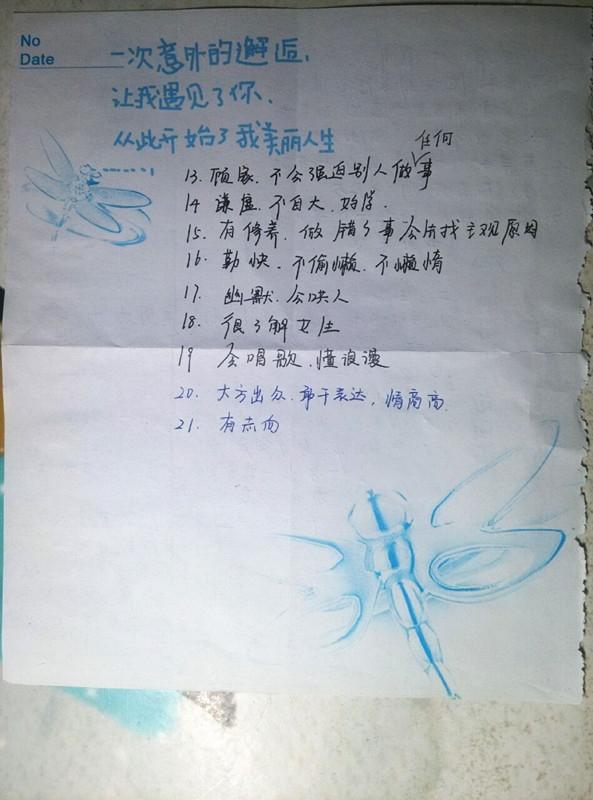 No
Date
一次意外的邂逅,
让我遇见了你、
从此开始了我美丽人生
任何
13. 顾家、不会强迫别人做事
14 谦虚、不自大、好学.
15. 有修养、做错了事会先找主观原因
16. 勤快、不偷懒、不懒惰
17. 幽默、会哄人
18. 很了解女生
19 会唱歌、懂浪漫
20. 大方出众、敢于表达, 情商高
21. 有志向